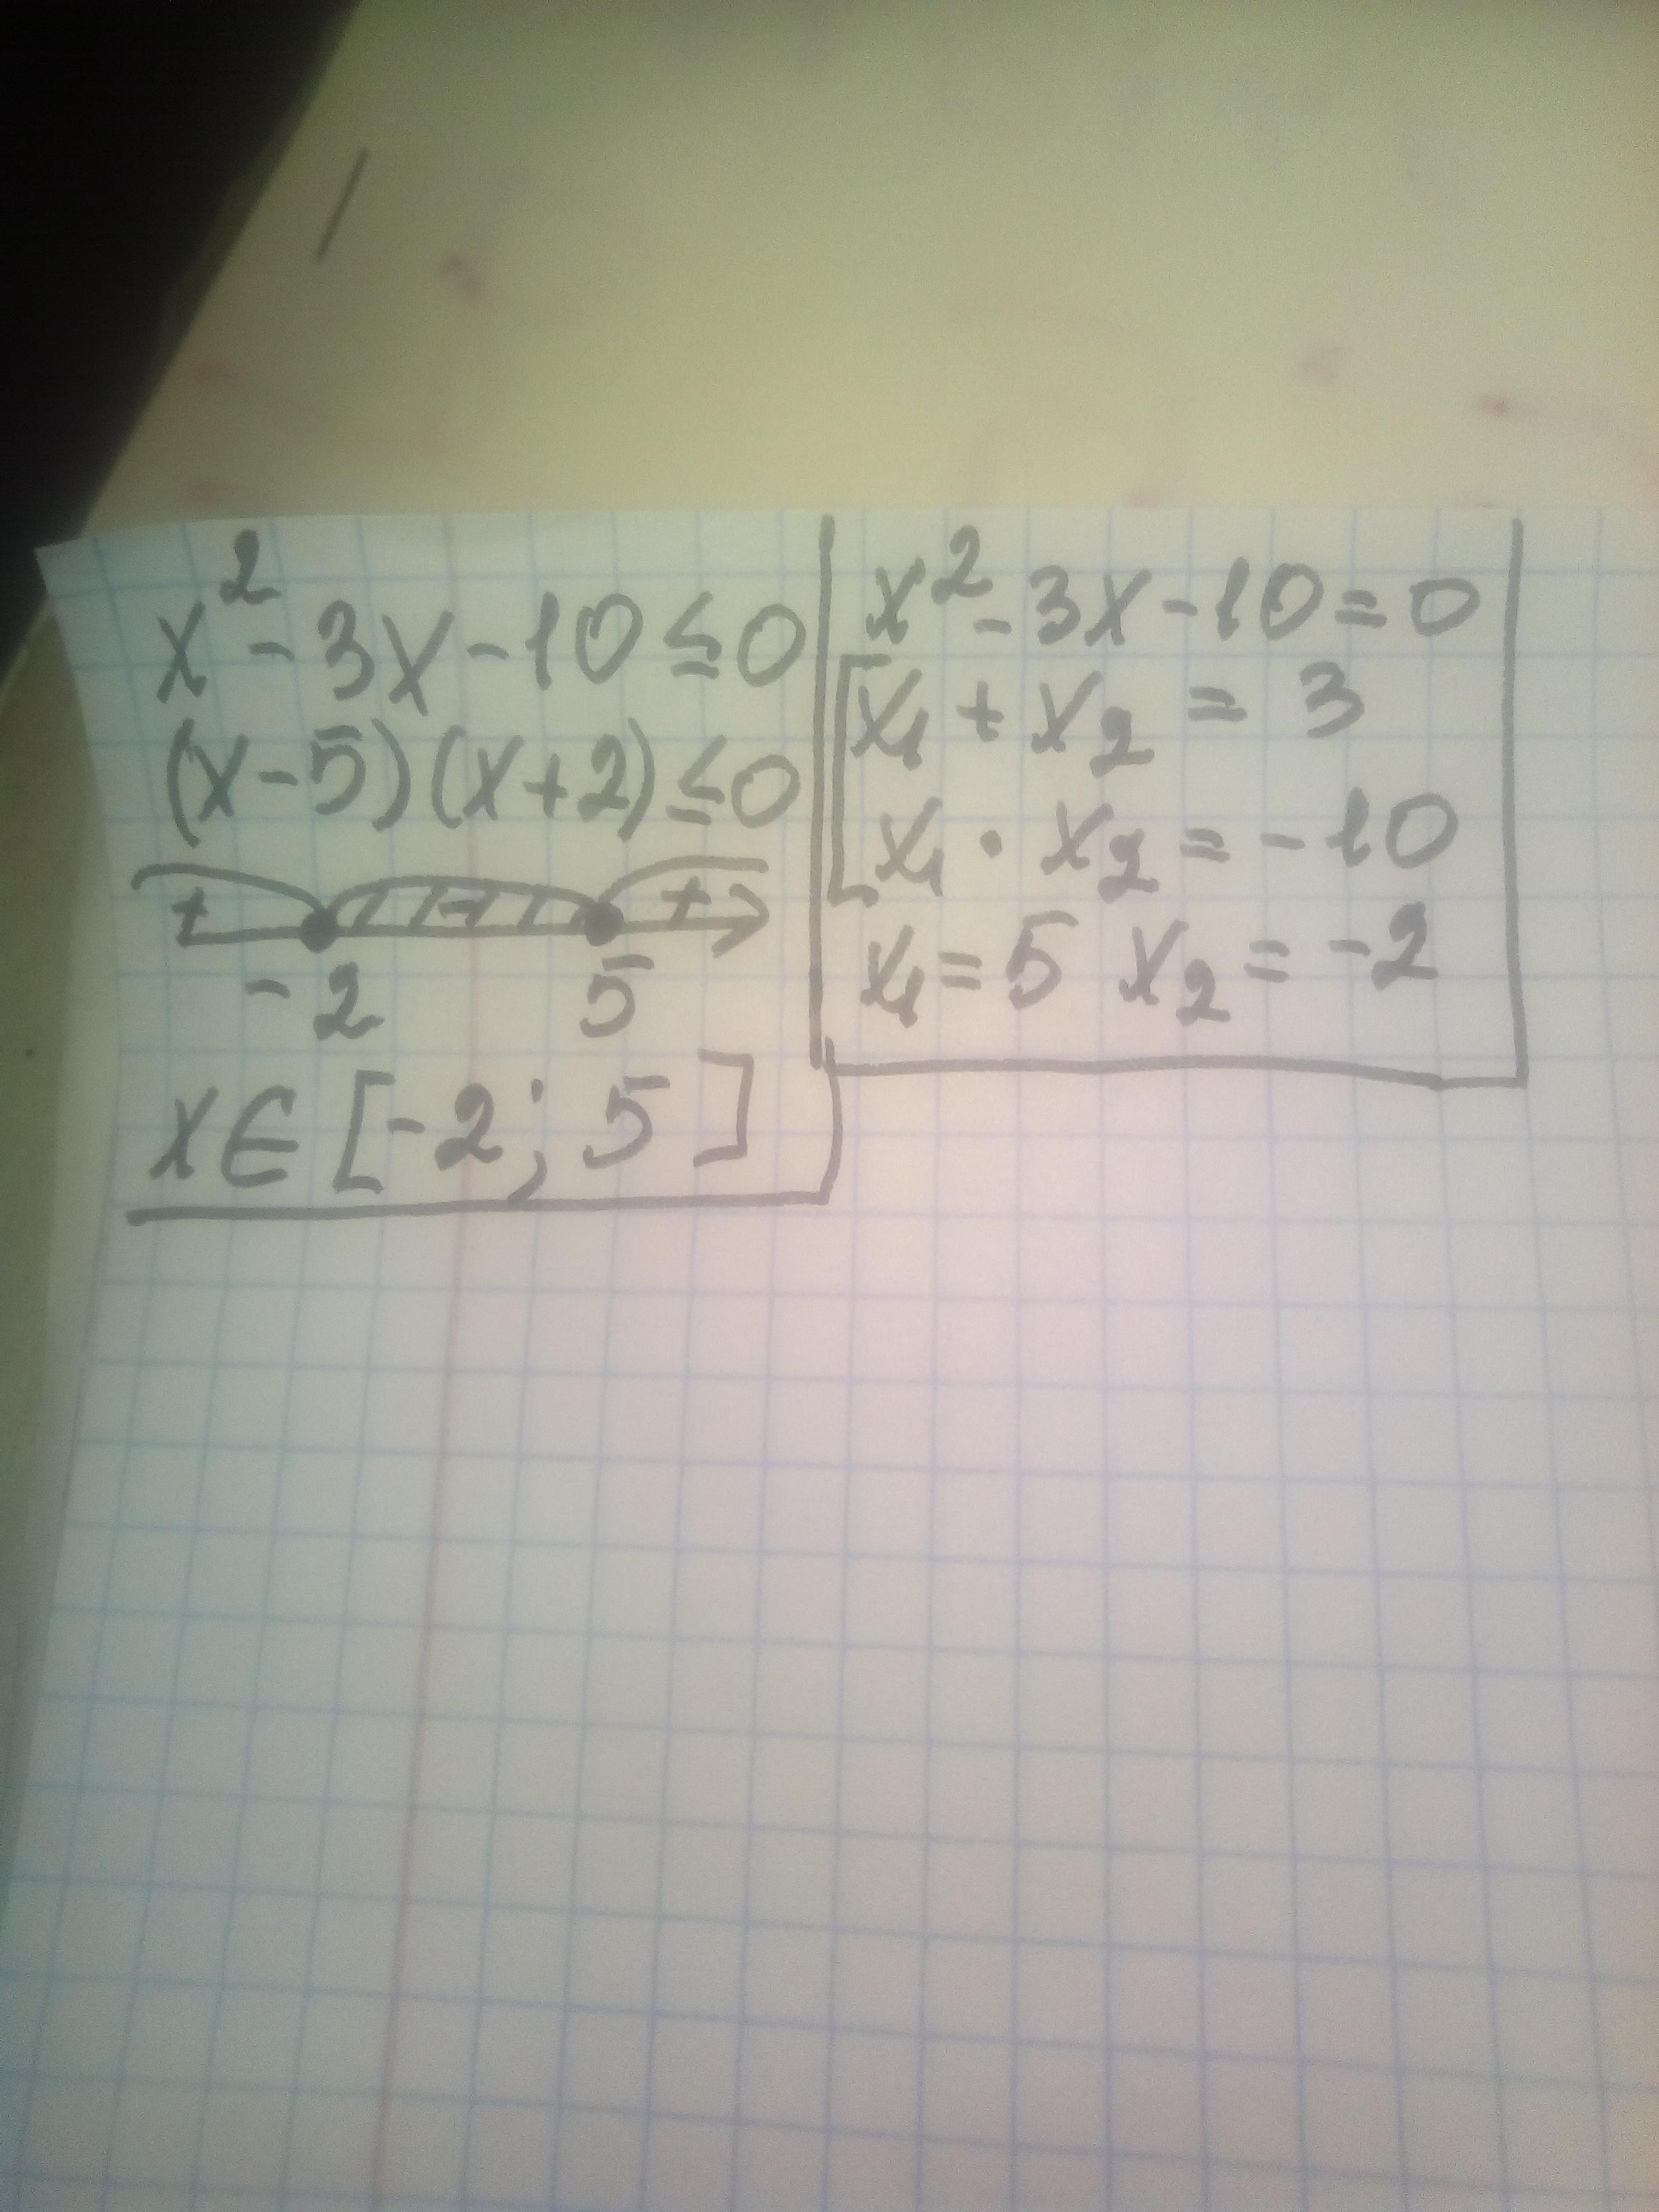 x² - 3x - 10 ≤ 0
(x - 5)(x + 2) ≤ 0
+ - +
-2 5
x ∈ [-2; 5]
x² - 3x - 10 = 0
x₁ + x₂ = 3
x₁ · x₂ = -10
x₁ = 5 x₂ = -2